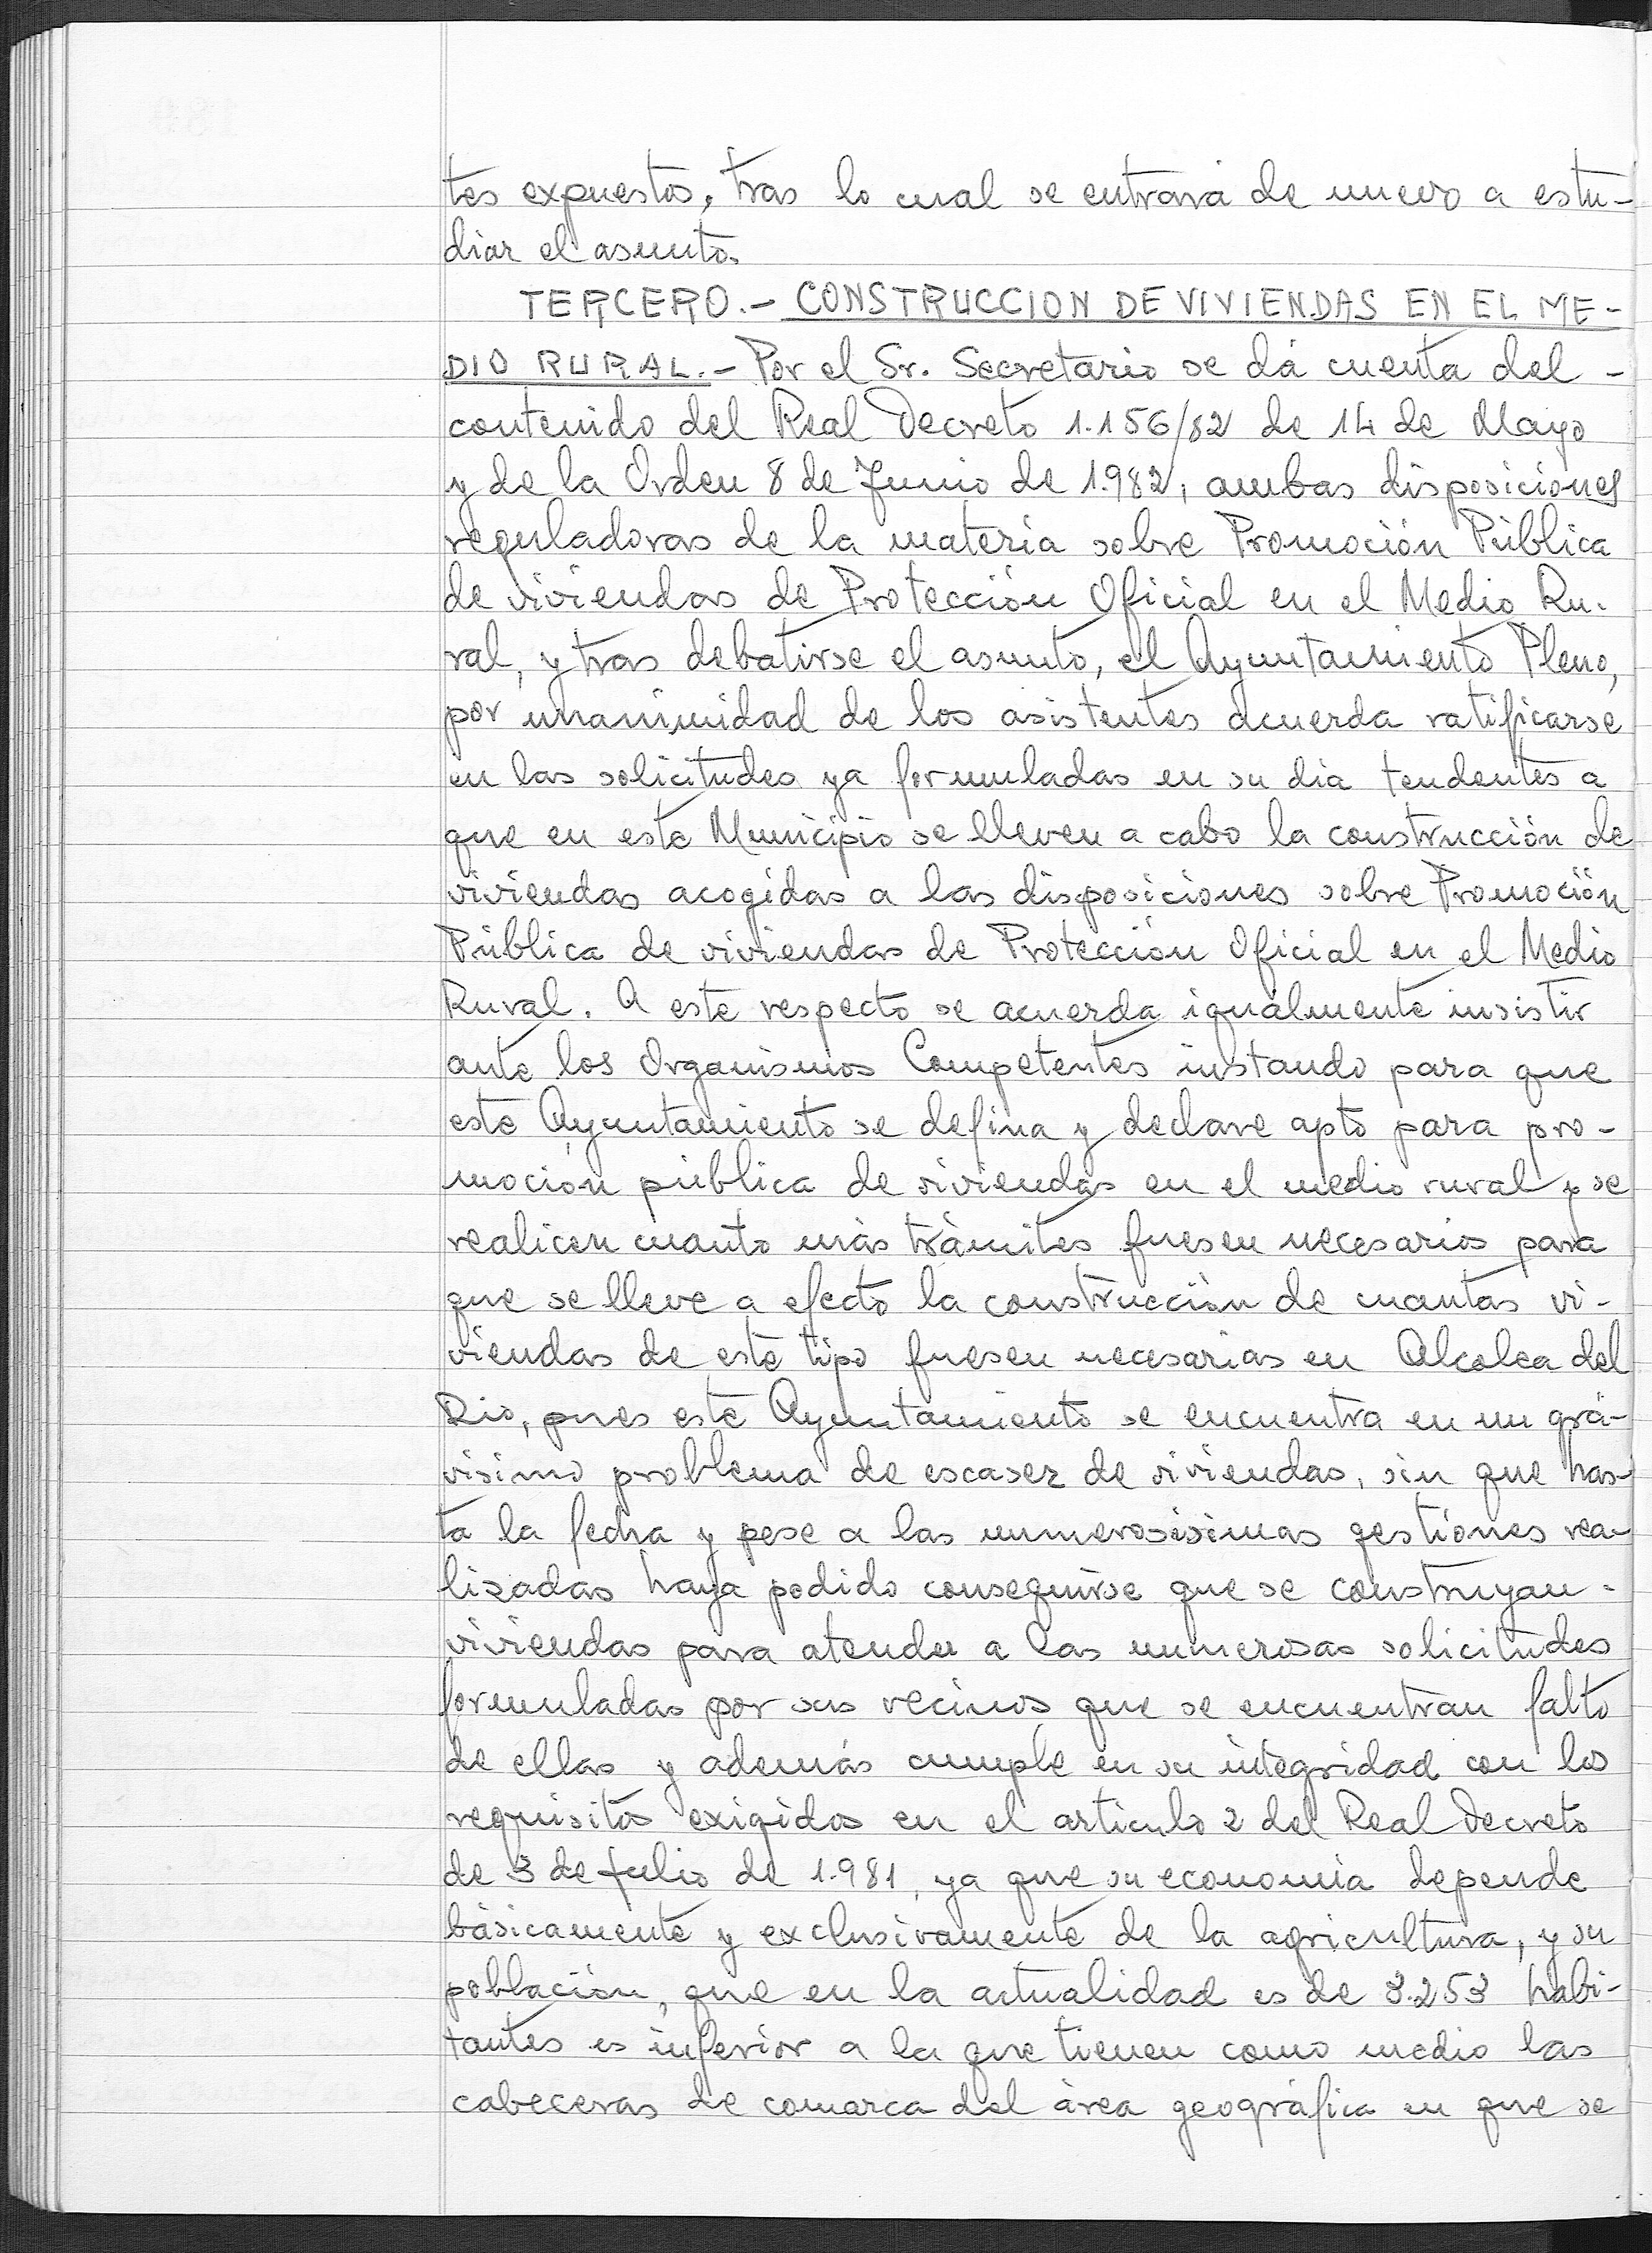 tes expuestos, tras lo cual se entrará de nuevo a estu-
diar el asunto.
TERCERO.- CONSTRUCCION DE VIVIENDAS EN EL ME-
DIO RURAL.- Por el Sr. Secretario se dá cuenta del -
contenido del Real Decreto 1.156/82 de 14 de Mayo
y de la Orden 8 de Junio de 1.982, ambas disposiciones
reguladoras de la materia sobre Promoción Pública
de viviendas de Protección Oficial en el Medio Ru-
ral, y tras debatirse el asunto, el Ayuntamiento Pleno,
por unanimidad de los asistentes acuerda ratificarse
en las solicitudes ya formuladas en su dia tendentes a
que en este Municipio se lleven a cabo la construcción de
viviendas acogidas a las disposiciones sobre Promoción
Pública de viviendas de Protección Oficial en el Medio
Rural. A este respecto se acuerda igualmente insistir
ante los Organismos Competentes instando para que
este Ayuntamiento se defina y declare apto para pro-
moción pública de viviendas en el medio rural y se
realicen cuanto más trámites fuesen necesarios para
que se lleve a efecto la construcción de cuantas vi-
viendas de este tipo fuesen necesarias en Alcolea del
Rio, pues este Ayuntamiento se encuentra en un grá-
visimo problema de escasez de viviendas, sin que has-
ta la fecha y pese a las numerosisimas gestiones rea-
lizadas haya podido conseguirse que se construyan -
viviendas para atender a las numerosas solicitudes
formuladas por sus vecinos que se encuentran falto
de ellas y además cumple en su integridad con los
requisitos exigidos en el articulo 2 del Real Decreto
de 3 de Julio de 1.981, ya que su economia depende
básicamente y exclusivamente de la agricultura, y su
población, que en la actualidad es de 3.253 habi-
tantes es inferior a la que tienen como medio las
cabeceras de comarca del área geográfica en que se